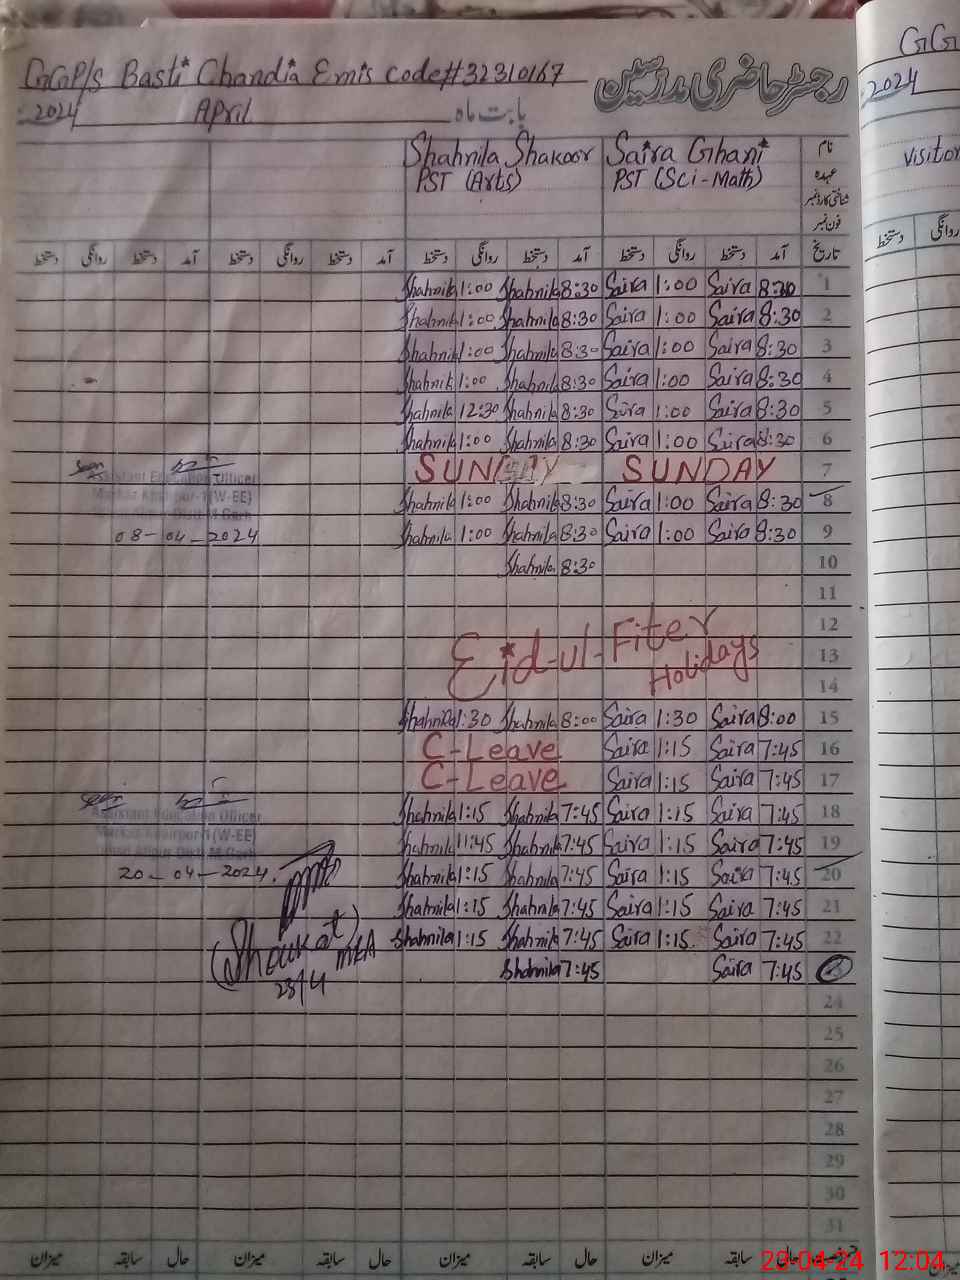 GGP/S Basti Chandia Emis code# 32310167 رجسٹر حاضری مدرسین
2024 April بابت ماہ
Shahnila Shakoor Saira Ghani نام
PST (Arts) PST (Sci-Math) عہدہ
شناختی کارڈ نمبر
فون نمبر
دستخط روانگی دستخط آمد دستخط روانگی دستخط آمد دستخط روانگی دستخط آمد دستخط روانگی دستخط آمد تاریخ
Shahnila 1:00 Shahnila 8:30 Saira 1:00 Saira 8:30 1
Shahnila 1:00 Shahnila 8:30 Saira 1:00 Saira 8:30 2
Shahnila 1:00 Shahnila 8:30 Saira 1:00 Saira 8:30 3
Shahnila 1:00 Shahnila 8:30 Saira 1:00 Saira 8:30 4
Shahnila 12:30 Shahnila 8:30 Saira 1:00 Saira 8:30 5
Shahnila 1:00 Shahnila 8:30 Saira 1:00 Saira 8:30 6
Seen SUNDAY SUNDAY 7
Assistant Education Officer
(W-EE)
Shahnila 1:00 Shahnila 8:30 Saira 1:00 Saira 8:30 8
08-04-2024 Shahnila 1:00 Shahnila 8:30 Saira 1:00 Saira 8:30 9
Shahnila 8:30 10
11
12
Eid-ul-Fiter 13
Holidays 14
Shahnila 1:30 Shahnila 8:00 Saira 1:30 Saira 8:00 15
C-Leave Saira 1:15 Saira 7:45 16
C-Leave Saira 1:15 Saira 7:45 17
Seen
Assistant Education Officer
(W-EE)
Shahnila 1:15 Shahnila 7:45 Saira 1:15 Saira 7:45 18
Shahnila 11:45 Shahnila 7:45 Saira 1:15 Saira 7:45 19
20-04-2024. Shahnila 1:15 Shahnila 7:45 Saira 1:15 Saira 7:45 20
Shahnila 1:15 Shahnila 7:45 Saira 1:15 Saira 7:45 21
(Shoukat) MEA Shahnila 1:15 Shahnila 7:45 Saira 1:15 Saira 7:45 22
23/4 Shahnila 7:45 Saira 7:45 23
24
25
26
27
28
29
30
31
میزان سابقہ حال میزان سابقہ حال میزان سابقہ حال میزان سابقہ حال
23-04-24 12:04
GG
2024
Visitor
دستخط روانگی
میزان